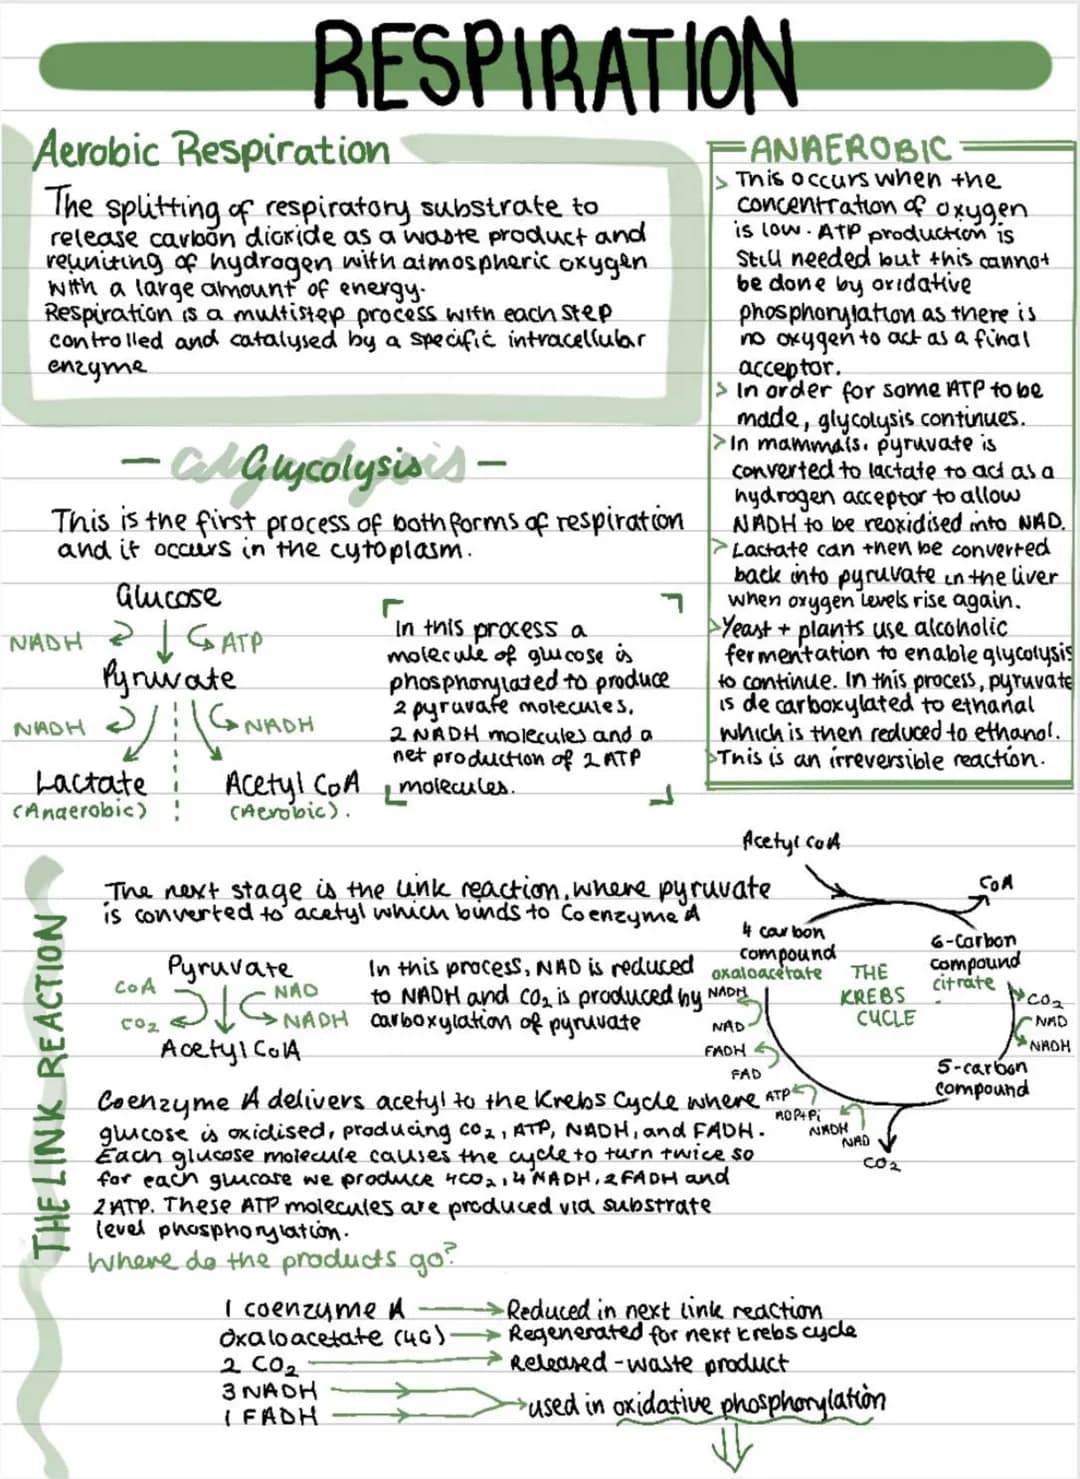 RESPIRATION
Aerobic Respiration
The splitting of respiratory substrate to
release carbon dioxide as a waste product and
reuniting of hydrogen with atmospheric oxygen
with a large amount of energy.
Respiration is a multistep process with each step
controlled and catalysed by a specific intracellular
enzyme
ANAEROBIC
> This occurs when the
concentration of oxygen
is low. ATP production is
still needed but this cannot
be done by oxidative
phosphorylation as there is
no oxygen to act as a final
acceptor.
> In order for some ATP to be
made, glycolysis continues.
> In mammals, pyruvate is
converted to lactate to act as a
hydrogen acceptor to allow
NADH to be reoxidised into NAD.
> Lactate can then be converted
back into pyruvate in the liver
when oxygen levels rise again.
> Yeast + plants use alcoholic
fermentation to enable glycolysis
to continue. In this process, pyruvate
is decarboxylated to ethanal
which is then reduced to ethanol.
> This is an irreversible reaction.
- Glycolysis -
This is the first process of both forms of respiration
and it occurs in the cytoplasm.
Glucose
NADH ATP
Pyruvate
NADH NADH
Lactate Acetyl CoA
(Anaerobic) (Aerobic).
In this process a
molecule of glucose is
phosphorylated to produce
2 pyruvate molecules,
2 NADH molecules and a
net production of 2 ATP
molecules.
THE LINK REACTION
The next stage is the link reaction, where pyruvate
is converted to acetyl which binds to Coenzyme A
Pyruvate
CoA NAD
CO2 NADH
Acetyl CoA
In this process, NAD is reduced
to NADH and CO2 is produced by
carboxylation of pyruvate
Acetyl CoA
CoA
4 carbon
compound
oxaloacetate
6-Carbon
compound
citrate
THE
KREBS
CYCLE
NADH
NAD
FADH
FAD
ATP
ADP+Pi
NADH
NAD
CO2
CO2
NAD
NADH
5-carbon
compound
Coenzyme A delivers acetyl to the Krebs Cycle where
glucose is oxidised, producing CO2, ATP, NADH, and FADH.
Each glucose molecule causes the cycle to turn twice so
for each glucose we produce 4CO2, 4 NADH, 2 FADH and
2 ATP. These ATP molecules are produced via substrate
level phosphorylation.
Where do the products go?
1 coenzyme A → Reduced in next link reaction
Oxaloacetate (4C) → Regenerated for next krebs cycle
2 CO2 → Released - waste product
3 NADH
1 FADH
used in oxidative phosphorylation